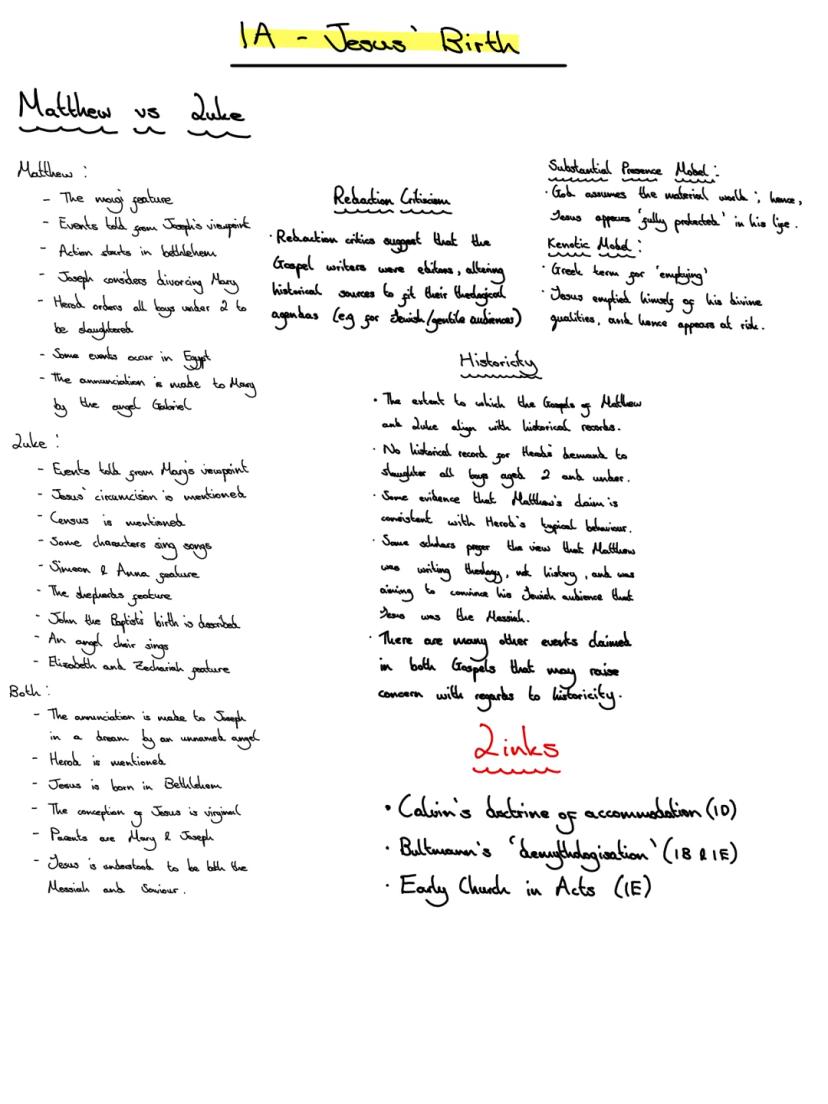 1A - Jesus' Birth
Matthew vs Luke
Matthew :
- The magi feature
- Events told from Joseph's viewpoint
- Action starts in bethlehem
- Joseph considers divorcing Mary
- Herod orders all boys under 2 to
be slaughtered
- Some events occur in Egypt
- The annunciation is made to Mary
by the angel Gabriel
Luke :
- Events told from Mary's viewpoint
- Jesus' circumcision is mentioned
- Census is mentioned
- Some characters sing songs
- Simeon & Anna feature
- The shepherds feature
- John the Baptists' birth is described
- An angel choir sings
- Elizabeth and Zechariah feature
Both :
- The annunciation is made to Joseph
in a dream by an unnamed angel
- Herod is mentioned
- Jesus is born in Bethlehem
- The conception of Jesus is virginal
- Parents are Mary & Joseph
- Jesus is understood to be both the
Messiah and Saviour.
Redaction Criticism
· Redaction critics suggest that the
Gospel writers were editors, altering
historical sources to fit their theological
agendas (e.g for Jewish/gentile audiences)
Substantial Presence Model :
· God assumes the material world ; hence,
Jesus appears 'fully protected' in his life.
Kenotic Model :
· Greek term for 'emptying'
· Jesus emptied himself of his divine
qualities, and hence appears at risk.
Historicity
· The extent to which the Gospels of Matthew
and Luke align with historical records.
· No historical record for Herod's demand to
slaughter all boys aged 2 and under.
· Some evidence that Matthew's claim is
consistent with Herod's typical behaviour.
· Some scholars prefer the view that Matthew
was writing theology, not history, and was
aiming to convince his Jewish audience that
Jesus was the Messiah.
· There are many other events claimed
in both Gospels that may raise
concern with regards to historicity.
Links
· Calvin's doctrine of accommodation (1D)
· Bultmann's 'demythologisation' (1B & 1E)
· Early Church in Acts (1E)